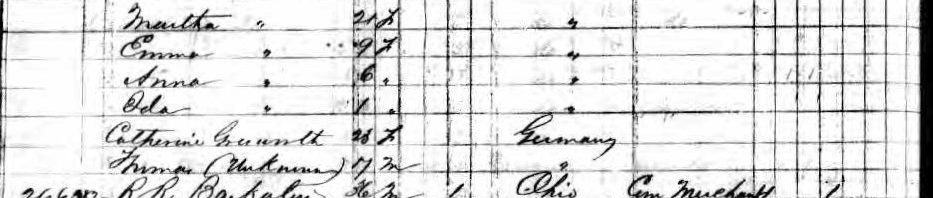 Martha " 21 F "
Emma " 9 F "
Anna " 6 " "
Ida " 1 " "
Catherine 23 F Germany
Thomas (Unknown) 17 M "
R. R. 36 M 1 Ohio Com Merchant 1